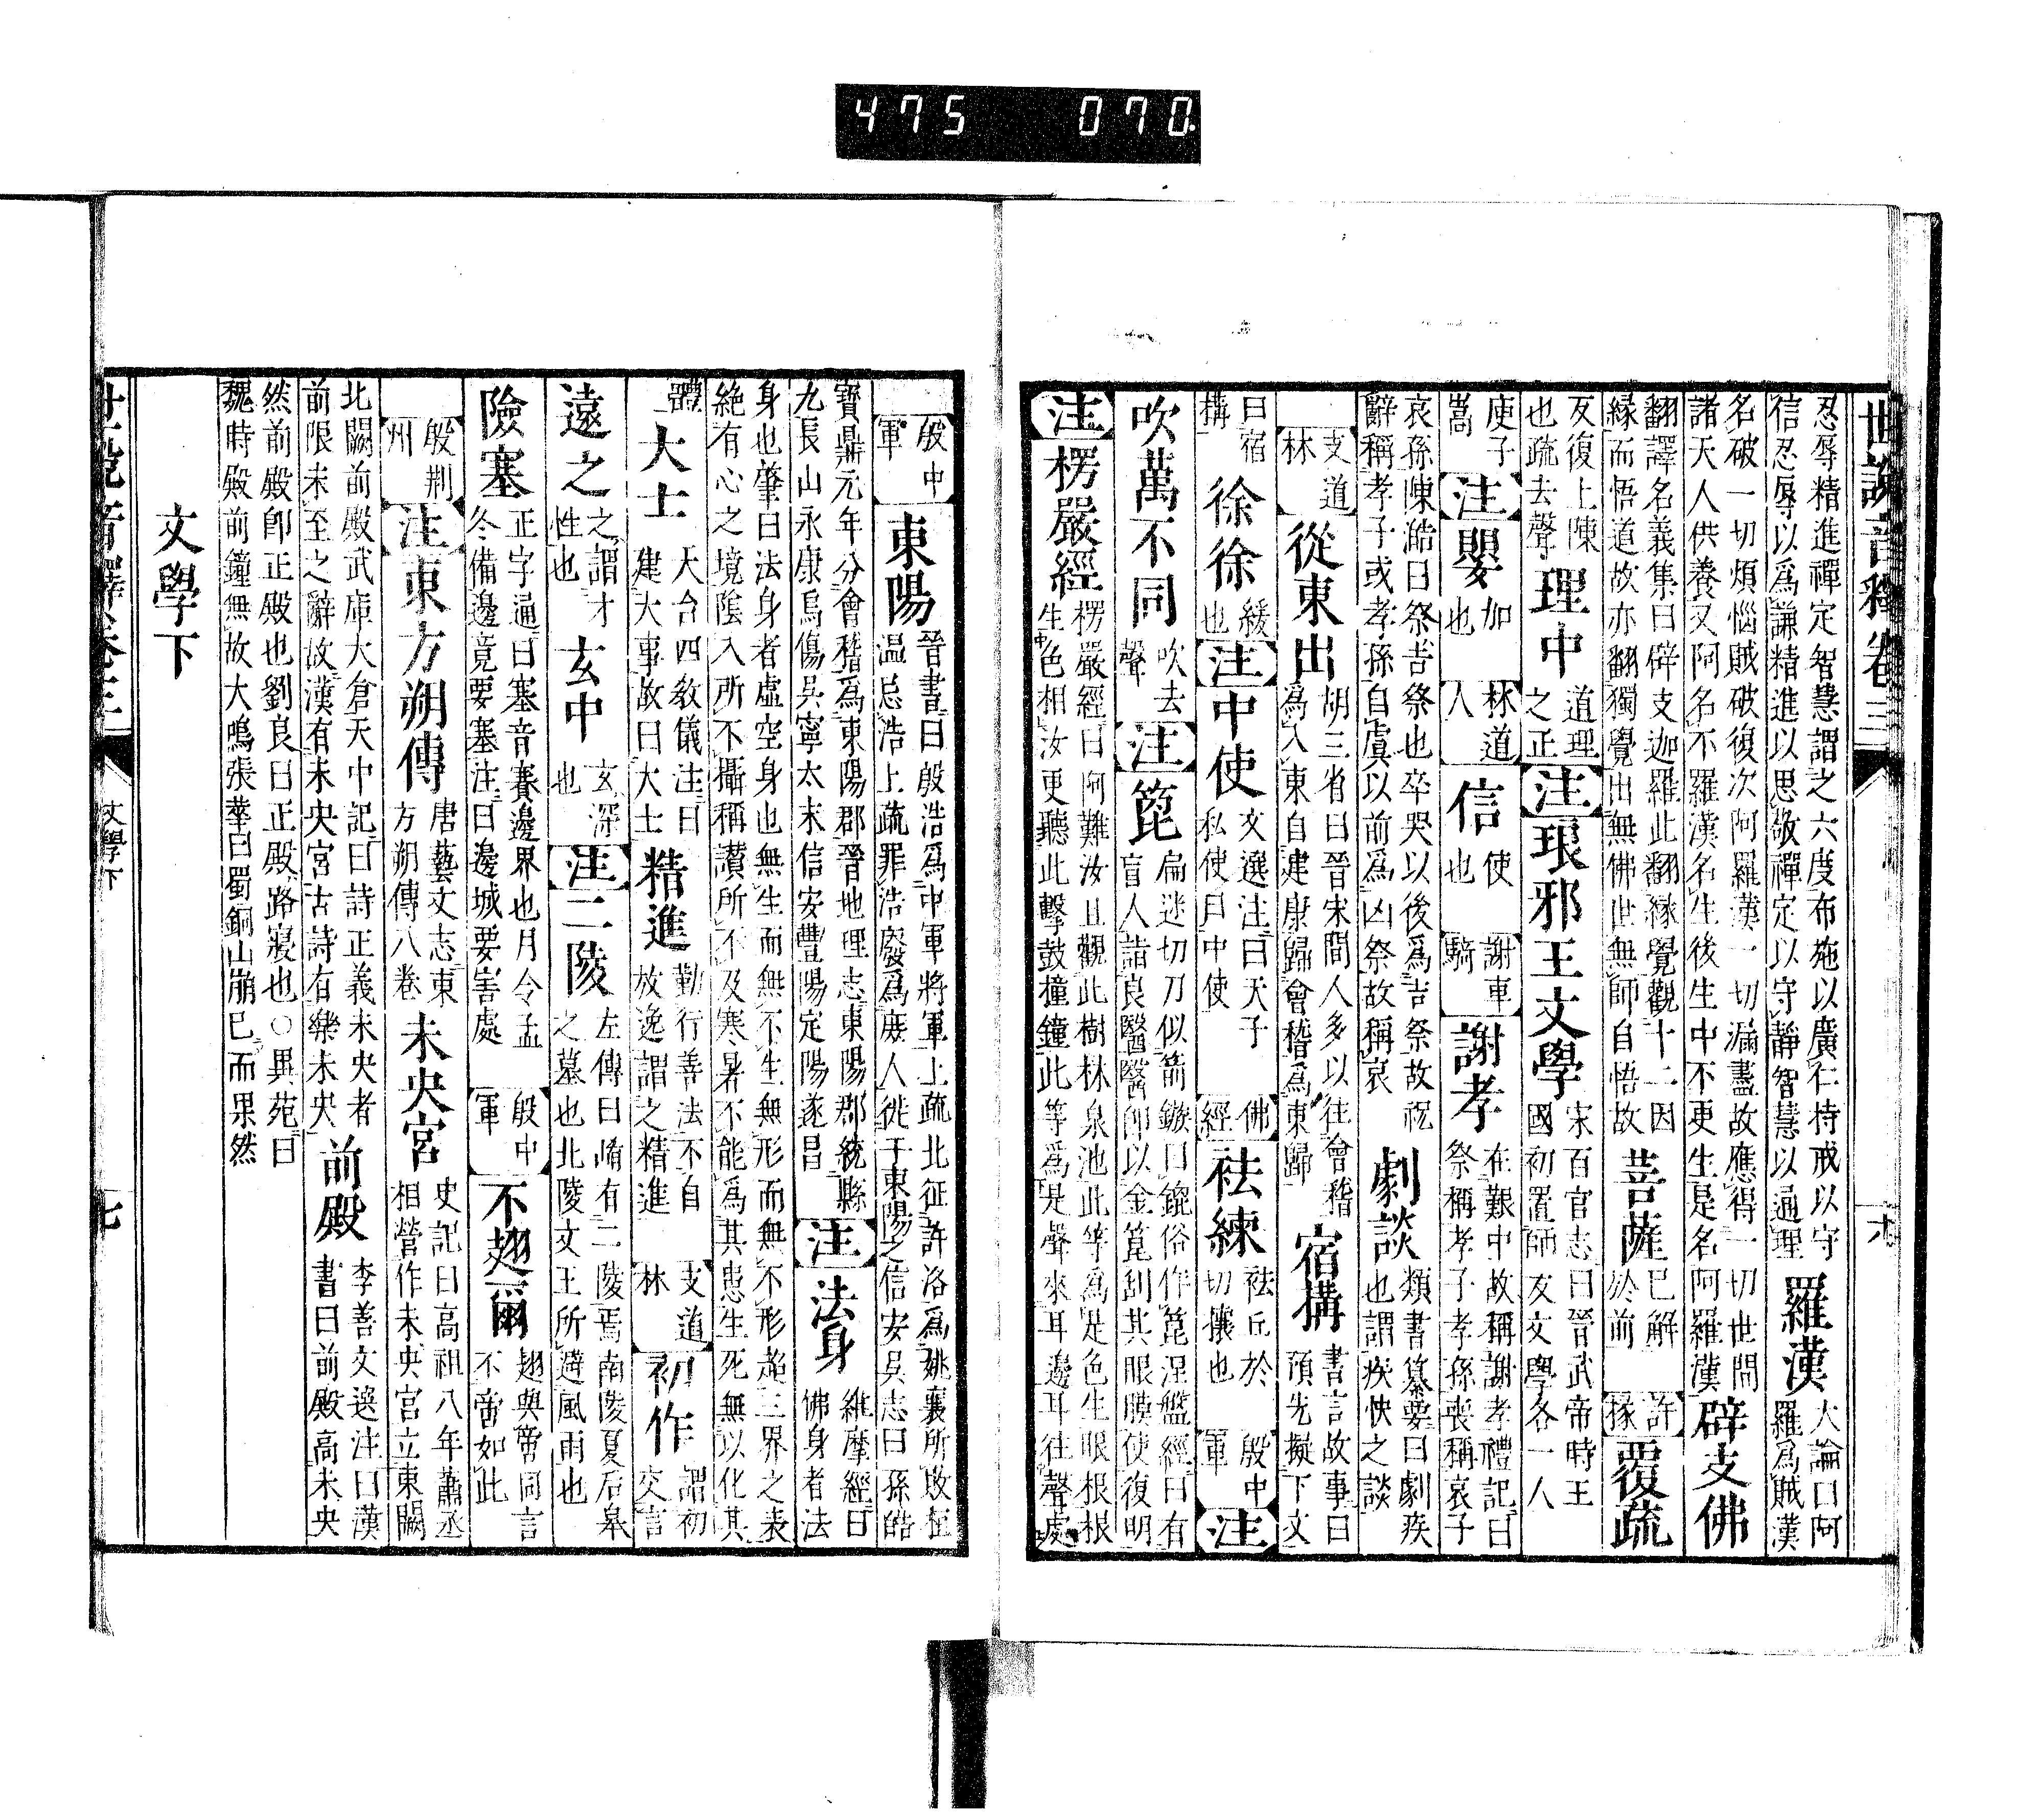 475 070.
世說音釋卷三
六
忍辱精進禪定智慧謂之六度布施以廣仁持戒以守
信忍辱以爲謙精進以思敬禪定以守靜智慧以通理
羅漢
大論曰阿
羅爲賊漢
名破一切煩惱賊破復次阿羅漢一切漏盡故應得一切世間
諸天人供養又阿名不羅漢名生後生中不更生是名阿羅漢
辟支佛
翻譯名義集曰辟支迦羅此翻緣覺觀十二因
緣而悟道故亦翻獨覺出無佛世無師自悟故
菩薩
已解
於前
許掾
覆疏
反復上陳
也疏去聲
理中
道理
之正
注
琅邪王文學
宋百官志曰晉武帝時王
國初置師友文學各一人
庾子嵩
注
嬰
加
也
林道人
信
使
也
謝車騎
謝孝
在艱中故稱謝孝禮記曰
祭稱孝子孝孫喪稱哀子
哀孫陳澔曰祭吉祭也卒哭以後爲吉祭故祝
辭稱孝子或孝孫自虞以前爲凶祭故稱哀
劇談
類書纂要曰劇疾
也謂疾快之談
支道林
從東出
胡三省曰晉宋間人多以往會稽
爲入東自建康歸會稽爲東歸
宿構
書言故事曰
預先擬下文
曰宿
構
徐徐
緩
也
注
中使
文選注曰天子
私使曰中使
佛經
祛練
祛丘於
切攘也
殷中軍
注
吹萬不同
吹去
聲
注
篦
扁迷切刀似箭鏃曰鎞俗作篦涅槃經曰有
盲人詣良醫醫卽以金篦刮其眼膜使復明
注
楞嚴經
楞嚴經曰阿難汝且觀此樹林泉池此等爲是色生眼根根
生色相汝更聽此擊鼓撞鐘此等爲是聲來耳邊耳往聲處
殷中軍
東陽
晉書曰殷浩爲中軍將軍上疏北征許洛爲姚襄所敗桓
温忌浩上疏罪浩廢爲庶人徙于東陽之信安吳志曰孫皓
寶鼎元年分會稽爲東陽郡晉地理志東陽郡統縣
九長山永康烏傷吳寧太末信安豐陽定陽遂昌
注
法身
維摩經曰
佛身者法
身也肇曰法身者虛空身也無生而無不生無形而無不形超三界之表
絕有心之境陰入所不攝稱讚所不及寒暑不能爲其患生死無以化其
體
大士
天台四教儀注曰
建大事故曰大士
精進
勤行善法不自
放逸謂之精進
支道林
初作
謂初
交言
遠之
之謂才
性也
玄中
玄深
也
注
二陵
左傳曰崤有二陵焉南陵夏后皋
之墓也北陵文王所避風雨也
險塞
正字通曰塞音賽邊界也月令孟
冬備邊竟要塞注曰邊城要害處
殷中軍
不翅爾
翅與啻同言
不啻如此
殷荆州
注
東方朔傳
唐藝文志東
方朔傳八卷
未央宮
史記曰高祖八年蕭丞
相營作未央宮立東闕
北闕前殿武庫大倉天中記曰詩正義未央者
前限未至之辭故漢有未央宮古詩有樂未央
前殿
李善文選注曰漢
書曰前殿高未央
然前殿卽正殿也劉良曰正殿路寢也○異苑曰
魏時殿前鐘無故大鳴張華曰蜀銅山崩已而果然
文學下
世說音釋卷三
文學下
七